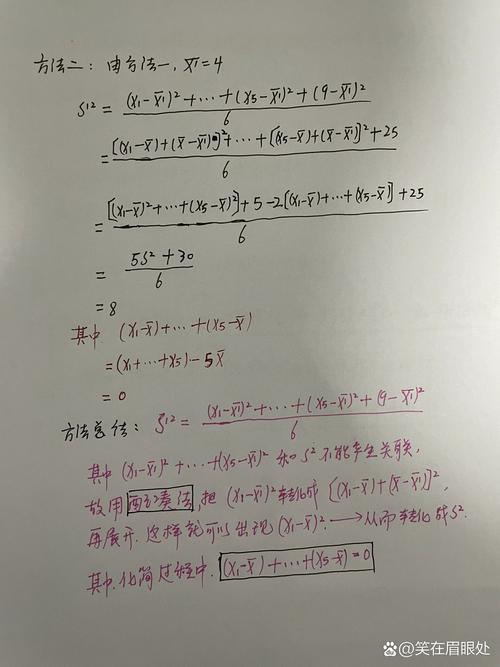 方法二：由方法一，x̄1=4
S1² = ((x1-x̄1)²+…+(x5-x̄1)²+(9-x̄1)²)/6
= ([(x1-x̄)+(x̄-x̄1)]²+…+[(x5-x̄)+(x̄-x̄1)]²+25)/6
= ([(x1-x̄)²+…+(x5-x̄)²]+5-2[(x1-x̄)+…+(x5-x̄)]+25)/6
= (5S²+30)/6
= 8
其中 (x1-x̄)+…+(x5-x̄)
=(x1+…+x5)-5x̄
= 0
方法总结：S1² = ((x1-x̄1)²+…+(x5-x̄1)²+(9-x̄1)²)/6
其中 (x1-x̄1)²+…+(x5-x̄1)² 和 S² 不能产生关联，
故用 配凑法，把 (x1-x̄1)² 转化成 [(x1-x̄)+(x̄-x̄1)]²，
再展开，这样就可以出现 (x1-x̄)²，→从而转化成S².
其中，化简过程中，(x1-x̄)+…+(x5-x̄)=0
@笑在眉眼处